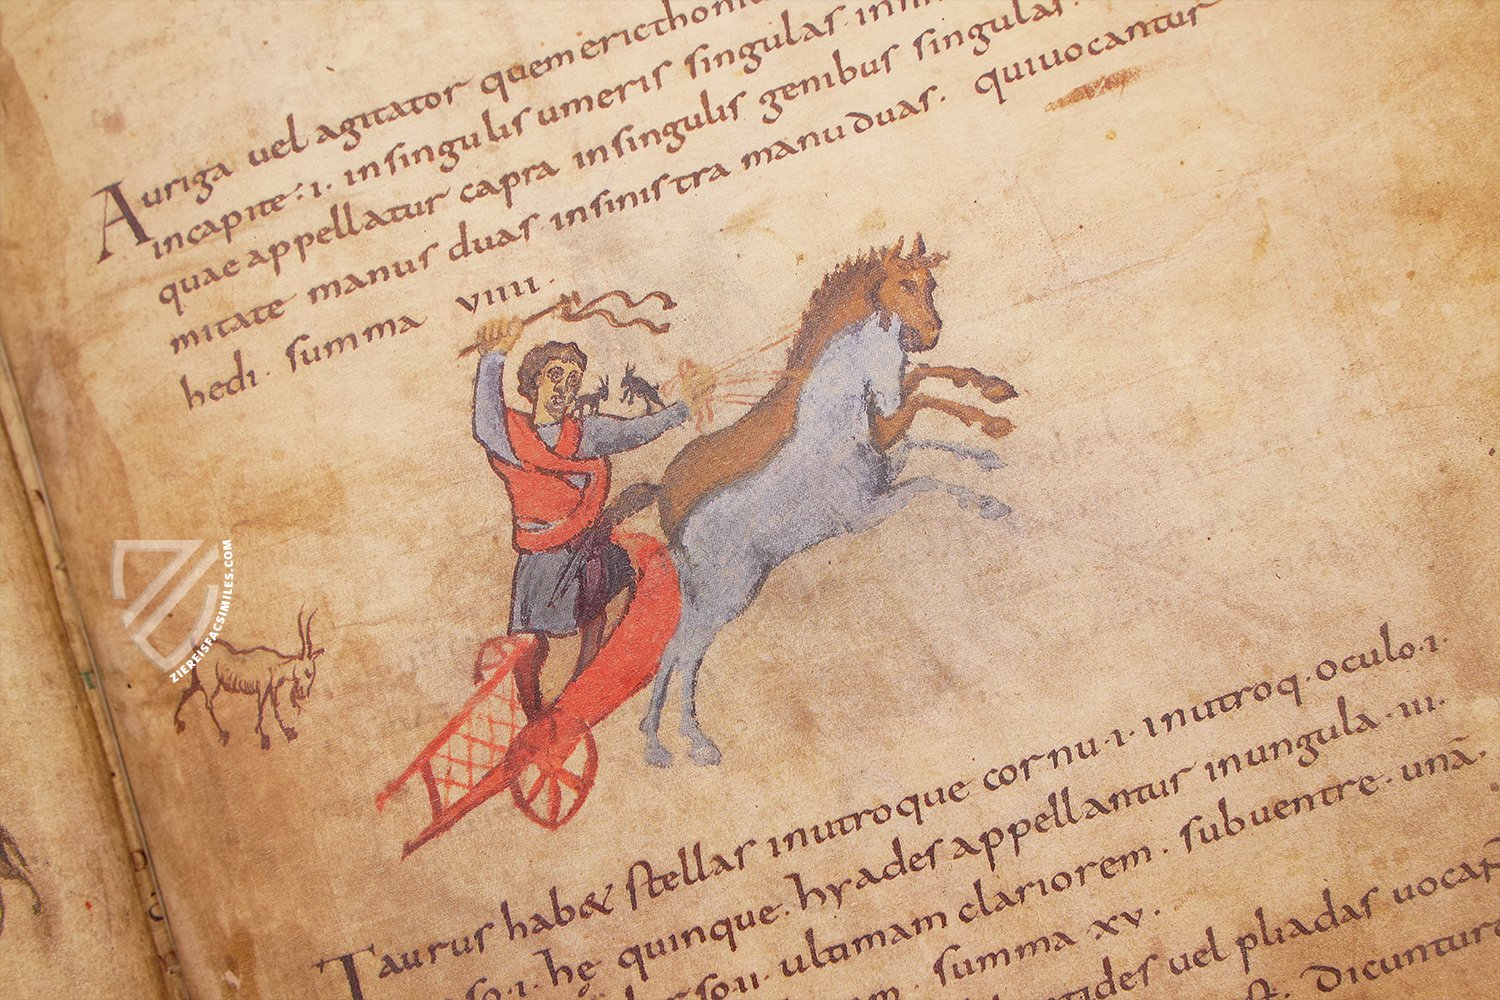 Auriga uel agitator quem ericthoni
incapite ·i· insingulis umeris singulas inn
quae appellatur capra insingulis genibus singulas
mitate manus duas insinistra manu duas · qui uocantur
hedi · summa viiii ·
ZIEREISFACSIMILES.COM
Taurus hab& stellas inutroque cornu ·i· inutroq· oculo ·i·
so ·i· hę quinque hyades appellantur inungula ·iii·
so ·ii· ultimam clariorem · subuentre · unā ·
summa xv ·
uel pliadas uocan
Dicuntur